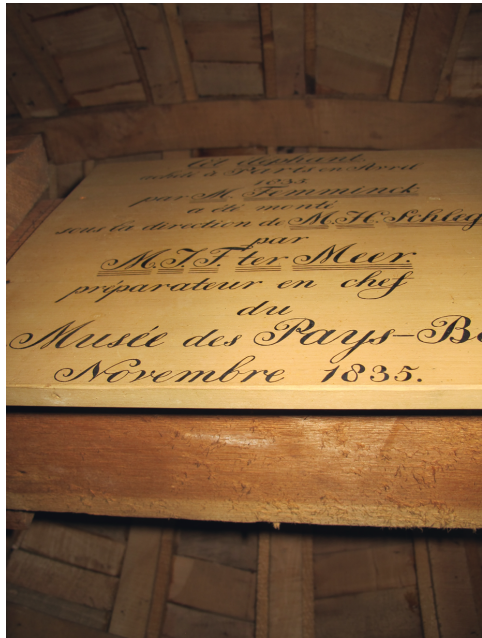 Cet éléphant
acheté à Paris en Avril
1833
par M. Temminck
a été monté
sous la direction de M. H. Schleg
par
M. J. F. ter Meer.
préparateur en chef
du
Musée des Pays-Ba
Novembre 1835.